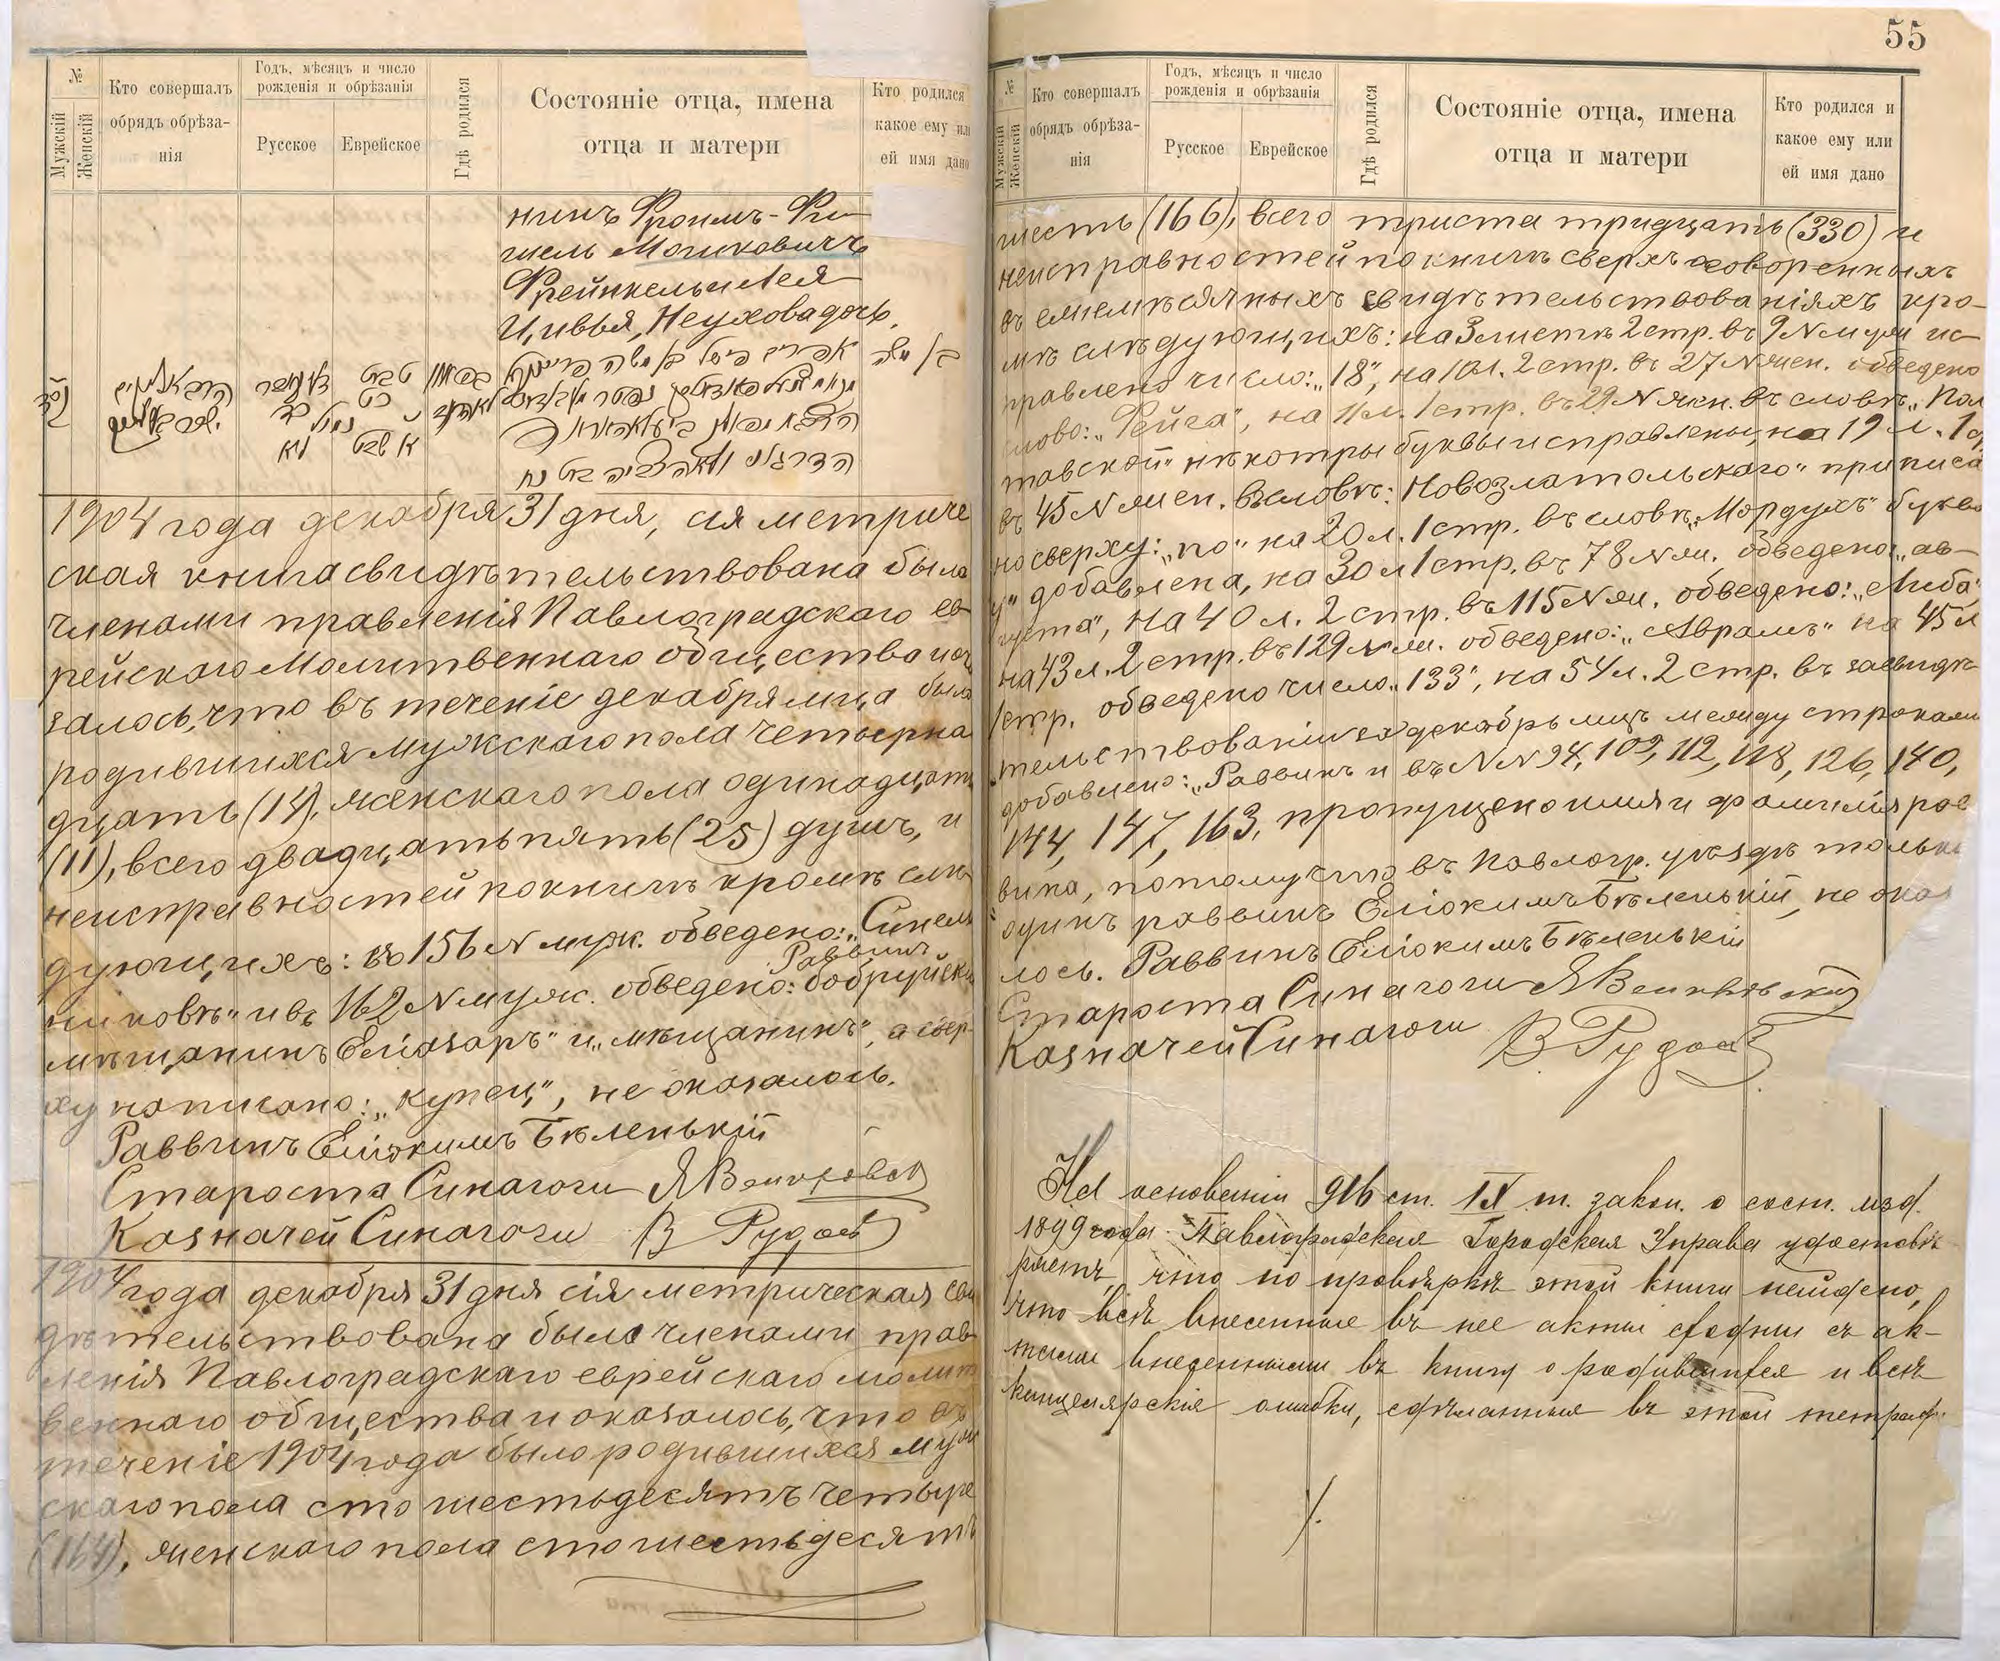 55
№
Мужскій
Женскій
Кто совершалъ
обрядъ обрѣза-
нія
Годъ, мѣсяцъ и число
рожденія и обрѣзанія
Русское
Еврейское
Гдѣ родился
Состояніе отца, имена
отца и матери
Кто родился
какое ему или
ей имя дано
нинъ Фроимъ-Фи-
шель Мошковичъ
Френкель и Лея
Цивья, Неухова дочь.
1904 года декабря 31 дня, сія метриче
ская книга свидѣтельствована была
членами правленія Павлоградскаго ев-
рейскаго Молитвеннаго общества и ока
залось, что въ теченіе декабря мѣца было
родившихся мужскаго пола четырна
дцать (14), женскаго пола одинадцать
(11), всего двадцать пять (25) душъ, и
неисправностей по книгѣ кромѣ слѣ-
дующихъ: въ 156 N муж. обведено: „Синель
Раввинъ
никовъ" и въ 162 N муж. обведено: бобруйскій
мѣщанинъ Еліазаръ" и „мѣщанинъ", а свер-
ху написано: „купец", не оказалось.
Раввинъ Еліокимъ Бѣленькій
Староста Синагоги Я
Казначей Синагоги В Рудой
1904 года декабря 31 дня сія метрическая сви
дѣтельствована была членами прав
ленія Павлоградскаго еврейскаго молит
веннаго общества и оказалось, что въ
теченіе 1904 года было родившихся муж
скаго пола сто шестьдесятъ четыре
(164), женскаго пола сто шестьдесятъ
№
Мужскій
Женскій
Кто совершалъ
обрядъ обрѣза-
нія
Годъ, мѣсяцъ и число
рожденія и обрѣзанія
Русское
Еврейское
Гдѣ родился
Состояніе отца, имена
отца и матери
Кто родился и
какое ему или
ей имя дано
шесть (166), всего триста тридцать (330) и
неисправностей по книгѣ сверхъ оговоренныхъ
въ ежемѣсячныхъ свидѣтельствованіяхъ кро-
мѣ слѣдующихъ: на 3 листѣ 2 стр. въ 9 N муж ис-
правлено число: „18", на 10 л. 2 стр. въ 27 N жен. обведено
слово: „Фейга", на 11 л. 1 стр. въ 29 N жен. въ словѣ „Пол
тавской" нѣкотры буквы исправлены, на 19 л. 1 с
въ 45 N жен. въ словѣ: Новозлатопольскаго" приписа
но сверху: „по" на 20 л. 1 стр. въ словѣ „Мордухъ" буква
у" добавлена, на 30 л 1 стр. въ 78 N м. обведено: „ав-
густа", на 40 л. 2 стр. въ 115 N м. обведено: „Либа"
на 43 л. 2 стр. въ 129 N м. обведено: „Аврамъ" на 45 л
1 стр. обведено число „133", на 54 л. 2 стр. въ засвидѣ-
тельствованіи за декабрь мцъ между строками
добавлено: „Раввинъ и въ N N 94, 109, 112, 118, 126, 140,
144, 147, 163, пропущено имя и фамилія рав
вина, потому что въ Павлогр. уѣздѣ только
одинъ раввинъ Еліокимъ Бѣленькій, не оказ
лось. Раввинъ Еліокимъ Бѣленькій
Староста Синагоги Я
Казначей Синагоги В Рудой
На основаніи 916 ст. IX т. закон. о сост. изд.
1899 года Павлоградская Городская Управа удостовѣ
ряетъ, что по провѣркѣ этой книги найдено,
что всѣ внесенные въ нее акты сходны съ ак-
тами внесенными въ книгу о родившихся и всѣ
канцелярскія ошибки, сдѣланныя въ этой тетрад